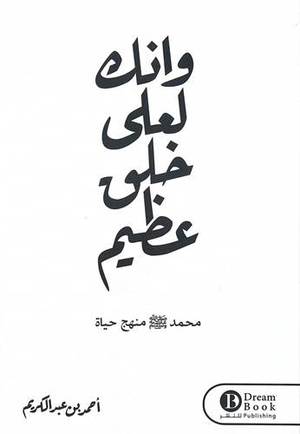 وانك
لعلى
خلق
عظيم
محمد ﷺ منهج حياة
أحمد بن عبد الكريم
Dream
Book
للنشر Publishing
B